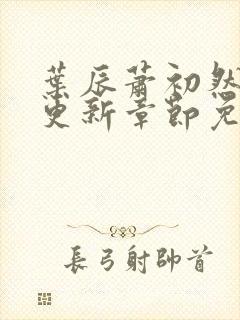 葉辰蕭初然
更新章節免
長弓射帥首